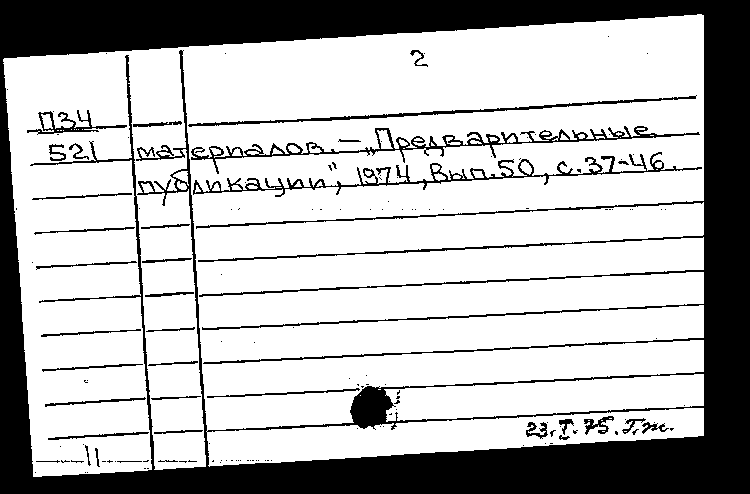 2
П34
521 материалов. – „Предварительные
публикации", 1974, вып. 50, с. 37-46.
23.I.75. Т.т.
11